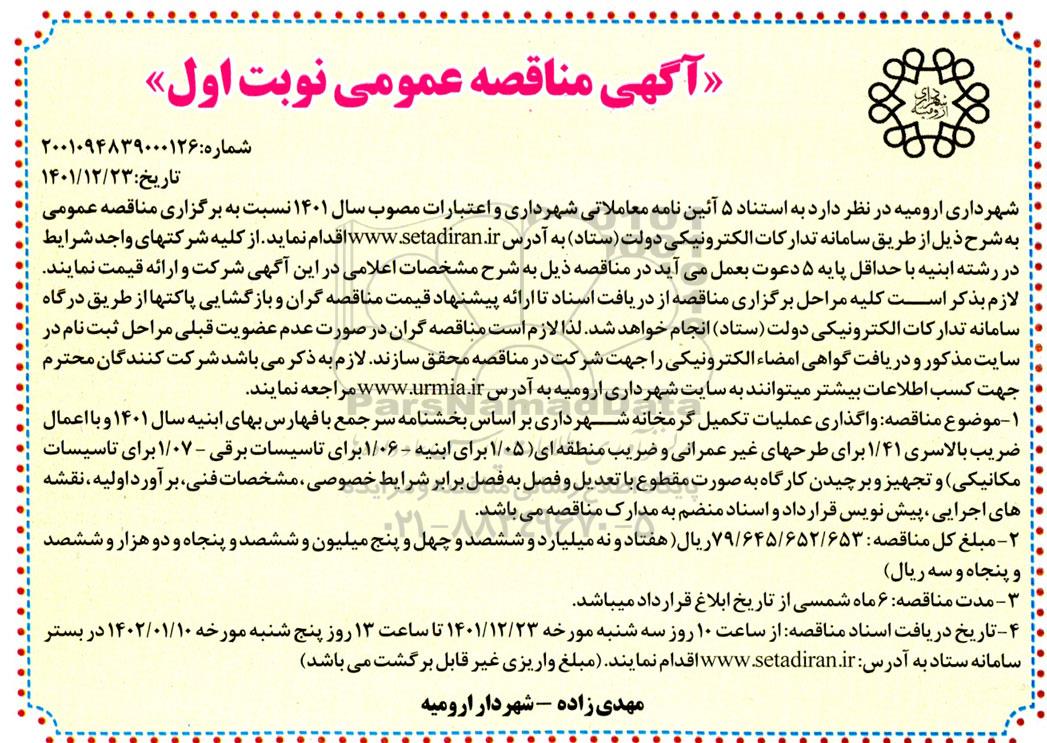 «آگهی مناقصه عمومی نوبت اول»
شهرداری ارومیه
شماره:۲۰۰۱۰۹۴۸۳۹۰۰۰۱۲۶
تاریخ:۱۴۰۱/۱۲/۲۳
شهرداری ارومیه در نظر دارد به استناد ۵ آئین نامه معاملاتی شهرداری و اعتبارات مصوب سال ۱۴۰۱ نسبت به برگزاری مناقصه عمومی
به شرح ذیل از طریق سامانه تدارکات الکترونیکی دولت (ستاد) به آدرس www.setadiran.ir اقدام نماید. از کلیه شرکتهای واجد شرایط
در رشته ابنیه با حداقل پایه ۵ دعوت بعمل می آید در مناقصه ذیل به شرح مشخصات اعلامی در این آگهی شرکت و ارائه قیمت نمایند.
لازم بذکر است کلیه مراحل برگزاری مناقصه از دریافت اسناد تا ارائه پیشنهاد قیمت مناقصه گران و بازگشایی پاکتها از طریق درگاه
سامانه تدارکات الکترونیکی دولت (ستاد) انجام خواهد شد. لذا لازم است مناقصه گران در صورت عدم عضویت قبلی مراحل ثبت نام در
سایت مذکور و دریافت گواهی امضاء الکترونیکی را جهت شرکت در مناقصه محقق سازند. لازم به ذکر می باشد شرکت کنندگان محترم
جهت کسب اطلاعات بیشتر میتوانند به سایت شهرداری ارومیه به آدرس www.urmia.ir مراجعه نمایند.
۱-موضوع مناقصه: واگذاری عملیات تکمیل گرمخانه شهرداری بر اساس بخشنامه سرجمع با فهارس بهای ابنیه سال ۱۴۰۱ و با اعمال
ضریب بالاسری ۱/۴۱ برای طرحهای غیر عمرانی و ضریب منطقه ای (۱/۰۵ برای ابنیه - ۱/۰۶ برای تاسیسات برقی - ۱/۰۷ برای تاسیسات
مکانیکی) و تجهیز و برچیدن کارگاه به صورت مقطوع با تعدیل و فصل به فصل برابر شرایط خصوصی ، مشخصات فنی، برآورد اولیه ، نقشه
های اجرایی ، پیش نویس قرارداد و اسناد منضم به مدارک مناقصه می باشد.
۲-مبلغ کل مناقصه : ۷۹/۶۴۵/۶۵۲/۶۵۳ ریال( هفتاد و نه میلیارد و ششصد و چهل و پنج میلیون و ششصد و پنجاه و دو هزار و ششصد
و پنجاه و سه ریال)
۳-مدت مناقصه: ۶ ماه شمسی از تاریخ ابلاغ قرارداد میباشد.
۴-تاریخ دریافت اسناد مناقصه: از ساعت ۱۰ روز سه شنبه مورخه ۱۴۰۱/۱۲/۲۳ تا ساعت ۱۳ روز پنج شنبه مورخه ۱۴۰۲/۰۱/۱۰ در بستر
سامانه ستاد به آدرس: www.setadiran.ir اقدام نمایند. (مبلغ واریزی غیر قابل برگشت می باشد)
مهدی زاده - شهردار ارومیه
ParsNamadData
پایگاه اطلاع رسانی مناقصه و مزایده
۰۲۱-۸۸۳۴۹۶۷۰-۵